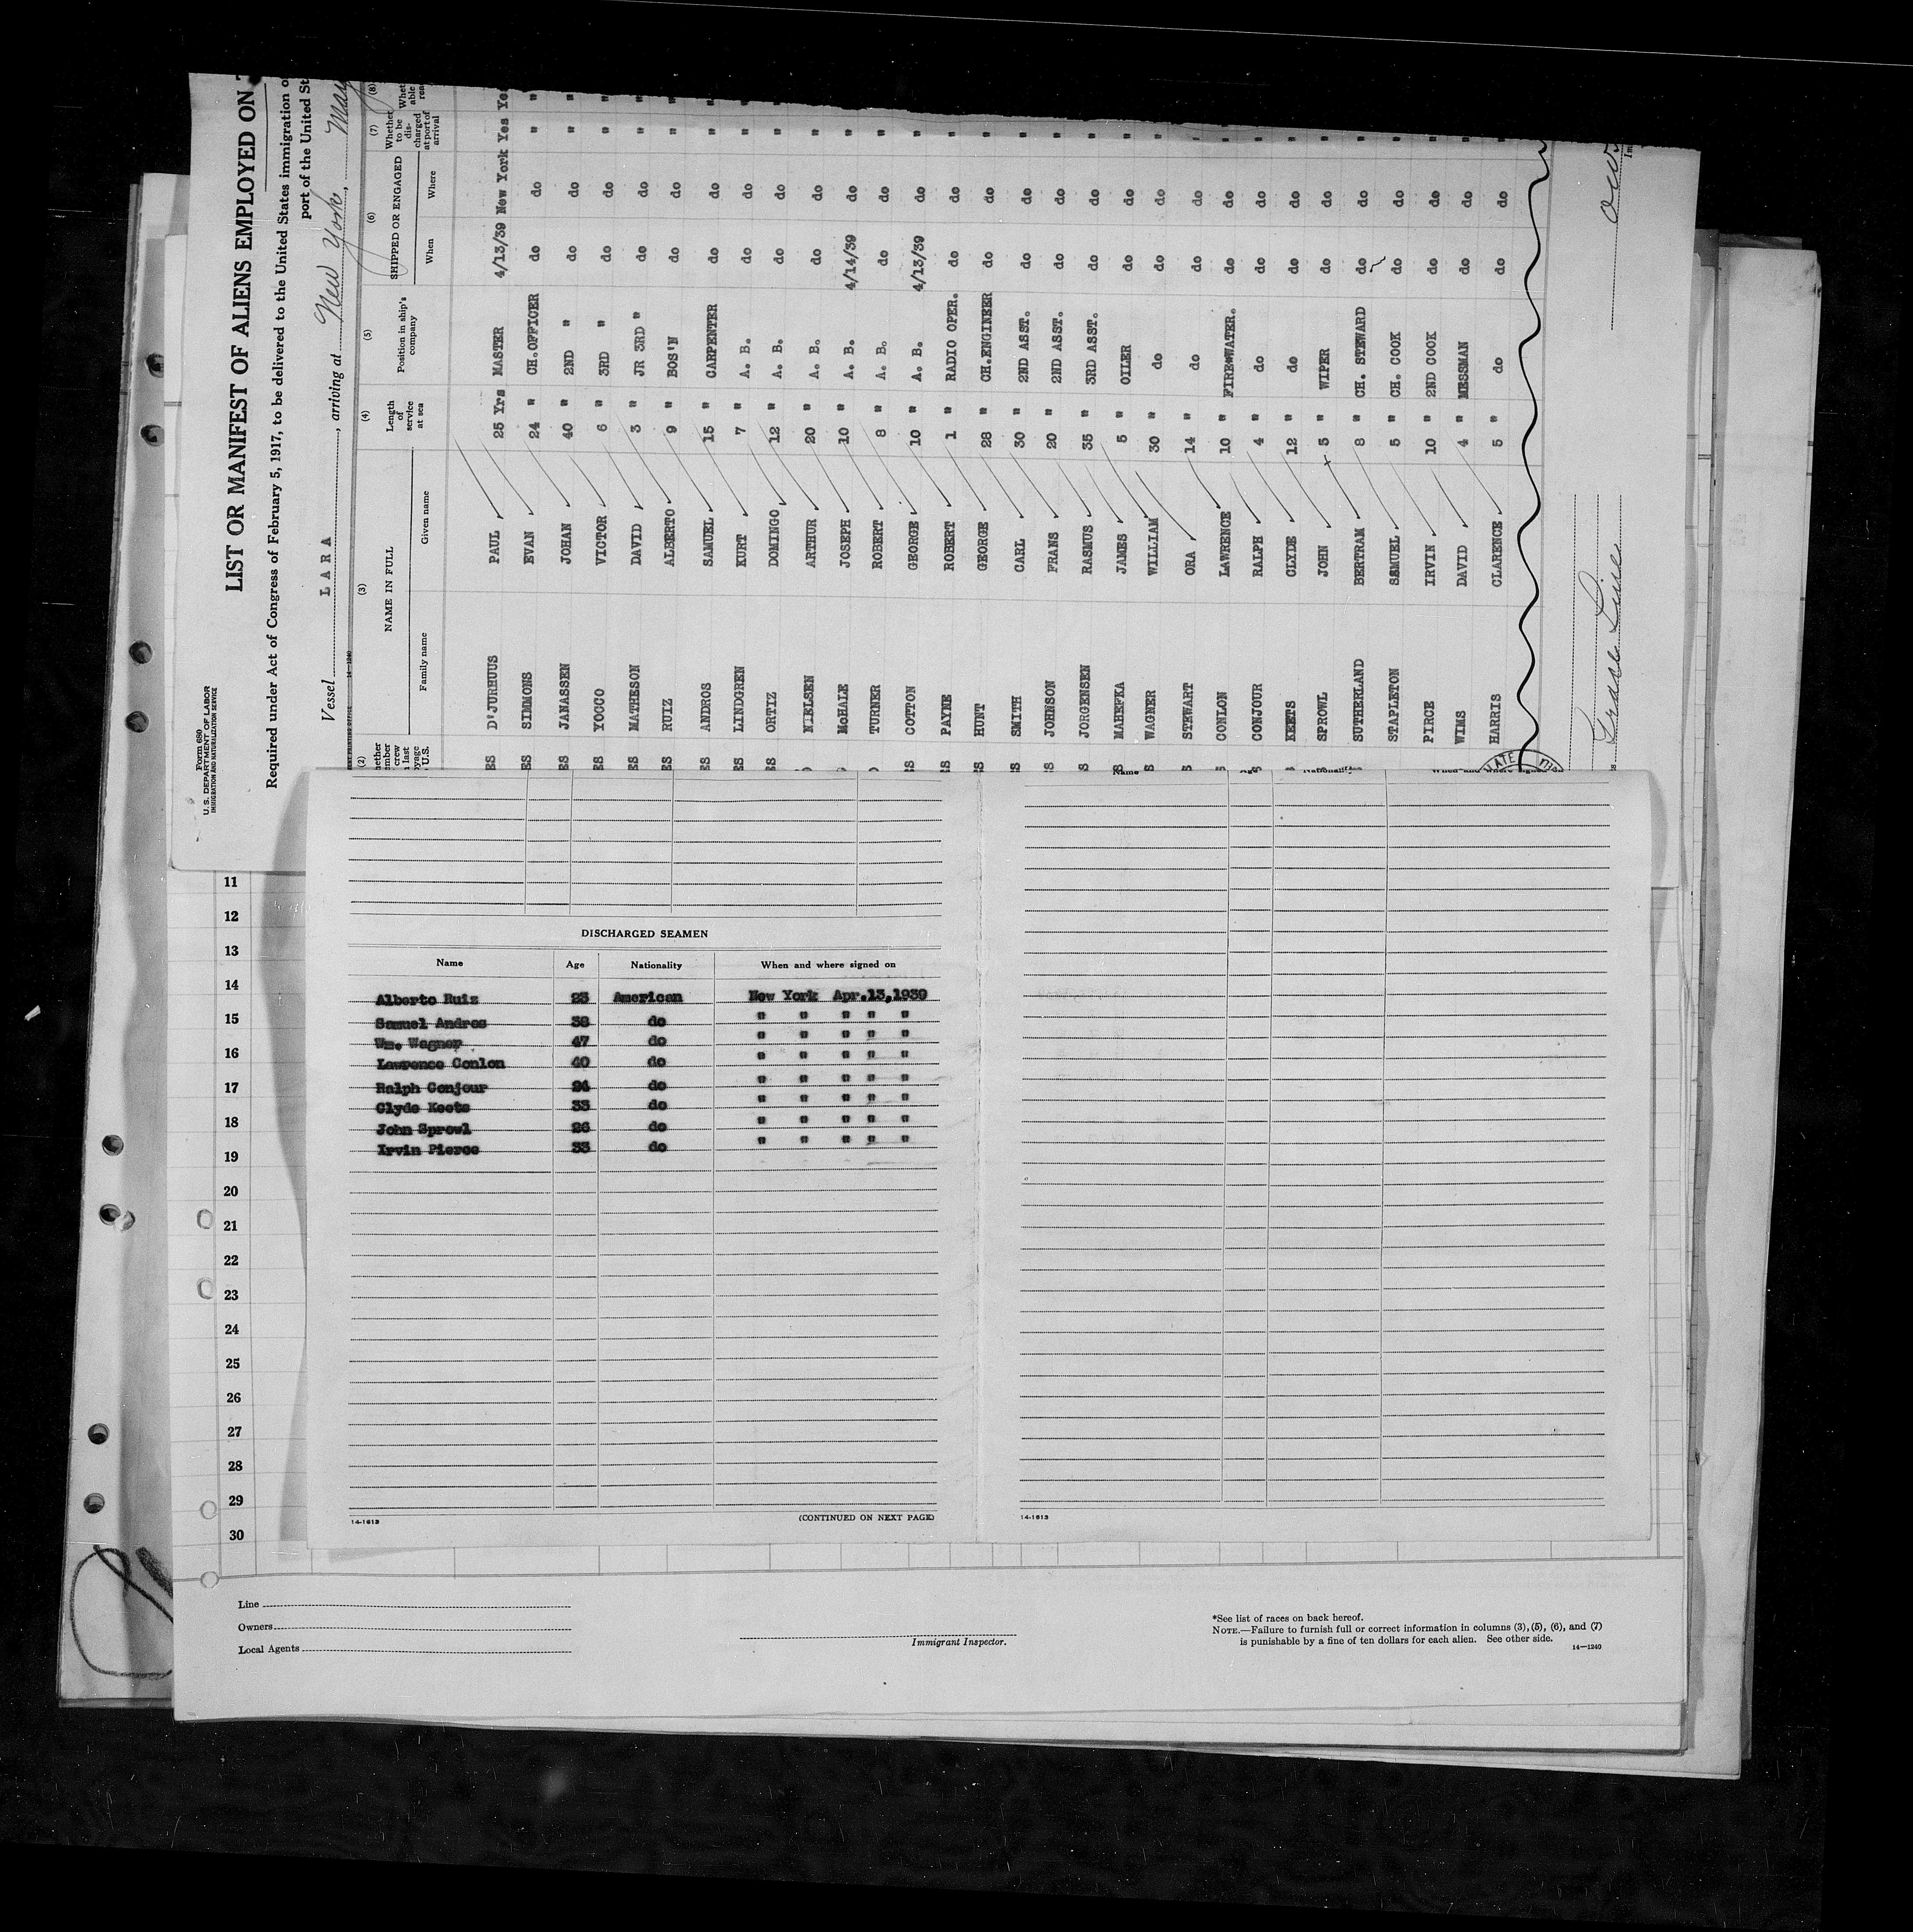 Form 680
U. S. DEPARTMENT OF LABOR
IMMIGRATION AND NATURALIZATION SERVICE
LIST OR MANIFEST OF ALIENS EMPLOYED ON
Required under Act of Congress of February 5, 1917, to be delivered to the United States immigration
port of the United St
Vessel LARA, arriving at New York, May
(2) (3) (4) (5) (6) (7) (8)
NAME IN FULL Length of service at sea Position in ship's company SHIPPED OR ENGAGED Whether to be discharged at port of arrival
Family name Given name When Where
ES D'JURHUUS PAUL 25 Yrs MASTER 4/13/39 New York Yes Yes
ES SIMMONS EVAN 24 " CH.OFFICER do do " "
ES JANASSEN JOHAN 40 " 2ND " do do " "
ES YOCCO VICTOR 6 " 3RD " do do " "
ES MATHESON DAVID 3 " JR 3RD " do do " "
ES RUIZ ALBERTO 9 " BOS'N do do " "
ES ANDROS SAMUEL 15 " CARPENTER do do " "
ES LINDGREN KURT 7 " A. B. do do " "
ES ORTIZ DOMINGO 12 " A. B. do do " "
NIELSEN ARTHUR 20 " A. B. do do " "
McHALE JOSEPH 10 " A. B. 4/14/39 do " "
TURNER ROBERT 8 " A. B. do do " "
ES COTTON GEORGE 10 " A. B. 4/13/39 do " "
ES PAYNE ROBERT 1 " RADIO OPER. do do "
S HUNT GEORGE 28 " CH.ENGINEER do do "
S SMITH CARL 30 " 2ND ASST. do do "
S JOHNSON FRANS 20 " 2ND ASST. do do "
S JORGENSEN RASMUS 35 " 3RD ASST. do do "
S MAHEFKA JAMES 5 " OILER do do "
S WAGNER WILLIAM 30 " do do do "
S STEWART ORA 14 " do do do "
S CONLON LAWRENCE 10 " FIRE&WATER. do do "
S CONJOUR RALPH 4 " do do do "
S KEETS CLYDE 12 " do do do "
S SPROWL JOHN 5 " WIPER do do "
SUTHERLAND BERTRAM 8 " CH. STEWARD do do "
STAPLETON SAMUEL 5 " CH. COOK do do "
PIRCE IRVIN 10 " 2ND COOK do do "
WIMS DAVID 4 " MESSMAN do do "
HARRIS CLARENCE 5 " do do do "
Grace Line
Name Age Nationality When and where signed
DISCHARGED SEAMEN
Name Age Nationality When and where signed on
Alberto Ruiz 23 American New York Apr.13,1939
Samuel Andros 38 do " " " " "
Wm. Wagner 47 do " " " " "
Lawrence Conlon 40 do " " " " "
Ralph Conjour 24 do " " " " "
Clyde Keets 33 do " " " " "
John Sprowl 26 do " " " " "
Irvin Pierce 33 do " " " " "
14-1613
(CONTINUED ON NEXT PAGE)
14-1613
11
12
13
14
15
16
17
18
19
20
21
22
23
24
25
26
27
28
29
30
Line
Owners
Local Agents
Immigrant Inspector.
*See list of races on back hereof.
NOTE.—Failure to furnish full or correct information in columns (3), (5), (6), and (7)
is punishable by a fine of ten dollars for each alien. See other side.
14—1240